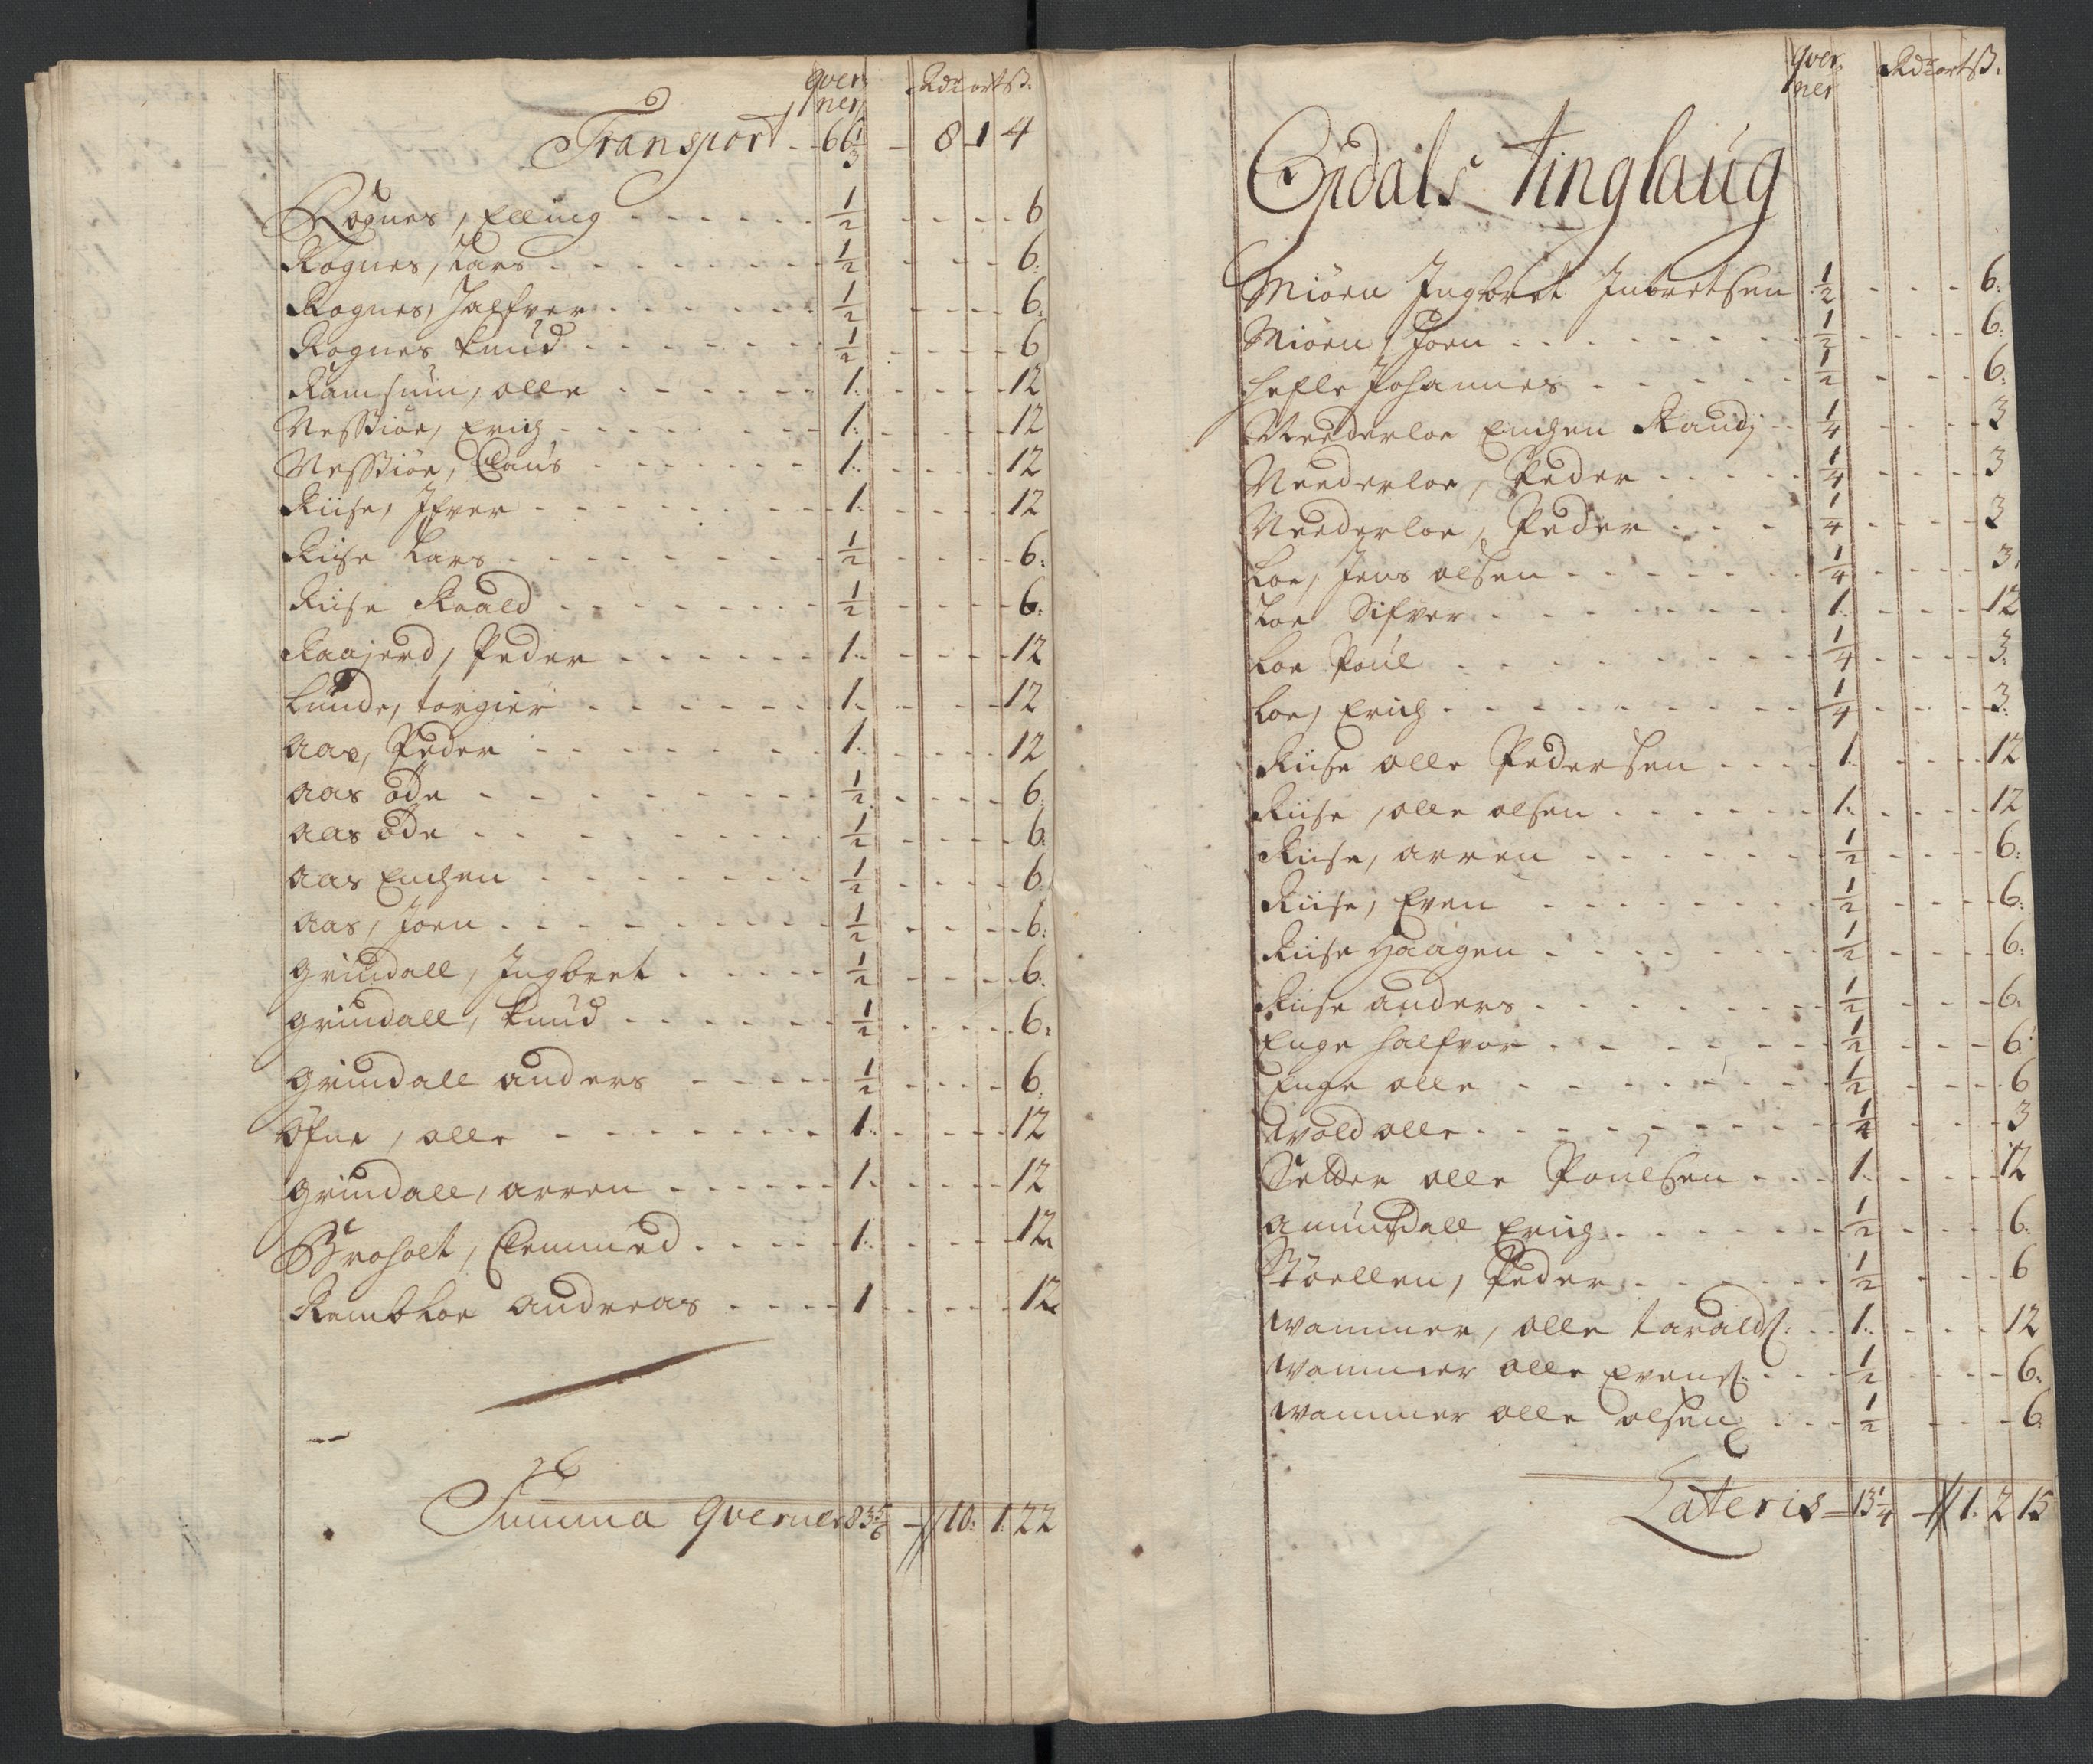 qver ner Rdr ort ß:
Transport - - 66 1/3 - 8 1 4
Rognes, Elling - - - - - - 1/2 - - - - 6
Rognes, Lars - - - - - - - - 1/2 - - - - 6:
Rognes, Halfver - - - - - - 1/2 - - - - 6:
Rognes Knud - - - - - - - 1/2 - - - - 6
Ramsum, olle - - - - - - 1: - - - - 12
Nesstiøe, Erich - - - - - - - - 1: - - - - 12
Nesstiøe, Claus - - - - - - - 1: - - - - 12
Riise, Ifver - - - - - - - - 1: - - - - 12
Riise Lars - - - - - - - - 1/2 - - - - 6:
Riise Roald - - - - - - - - 1/2 - - - - 6:
Raajerd, Peder - - - - - - 1: - - - - 12
Lunde, torgier - - - - - - 1: - - - - 12
Aas, Peder - - - - - - - - 1: - - - - 12
Aas øde - - - - - - - - - 1/2 - - - - 6
Aas øde - - - - - - - - - 1/2 - - - - 6:
Aas Enchen - - - - - - - 1/2 - - - - 6:
Aas, Joen - - - - - - - - - 1/2 - - - - 6:
Grindall, Ingbret - - - - - 1/2 - - - - 6:
Grindall, Knud - - - - - - 1/2 - - - - 6:
Grindall anders - - - - - 1/2 - - - - 6
Øfne, olle - - - - - - - - 1: - - - - 12
Grindall, arren - - - - - - 1: - - - - 12
Broholt, Clemmed - - - - - 1: - - - - 12
Andreas - - - - 1 - - - - 12
Summa qverner 83 5/6 - 10: 1: 22
qver ner Rdr ort ß:
Opdals tinglaug
Miøen Ingbret Inbretsen 1/2 - - - 6:
Miøen, Joen - - - - - - - - 1/2 - - - - 6:
Hefle Johannes - - - - - - 1/2 - - - 6:
Neederloe Enchen Randj - - 1/4 - - - - 3
Neederloe, Peder - - - - - 1/4 - - - - 3
Neederloe, Peder - - - - 1/4 - - - - 3
Loe, Jens olsen - - - - - - - 1/4 - - - - 3,
Loe Sifver - - - - - - - - 1: - - - - 12
Loe Poul - - - - - - - - 1/4 - - - - 3:
Loe, Erich - - - - - - - - - 1/4 - - - - 3:
Riise olle Pedersen - - - - 1: - - - - 12
Riise, olle olsen - - - - - - 1: - - - - 12
Riise, arren - - - - - - - 1/2 - - - - 6:
Riise, Even - - - - - - - - 1/2 - - - - 6:
Riise Haagen - - - - - - - - 1/2 - - - - 6:
Riise anders - - - - - - - - 1/2 - - - - 6:
Enge Halfvor - - - - - - - 1/2 - - - - 6:
Enge olle - - - - - - - - 1/2 - - - - 6
Wold olle - - - - - - - - - 1/4 - - - - 3
Setter olle Poulsen - - - 1: - - - - 12
Amundall Erich - - - - - - 1/2 - - - - 6:
Støellen, Peder - - - - - - 1/2 - - - - 6
Wammer, olle taralds: - - 1: - - - - 12
Wammer olle Evens: - - - 1/2 - - - - 6:
Wammer olle olsen - - - 1/2 - - - - 6:
Lateris - 13 1/4 - 1: 2 15